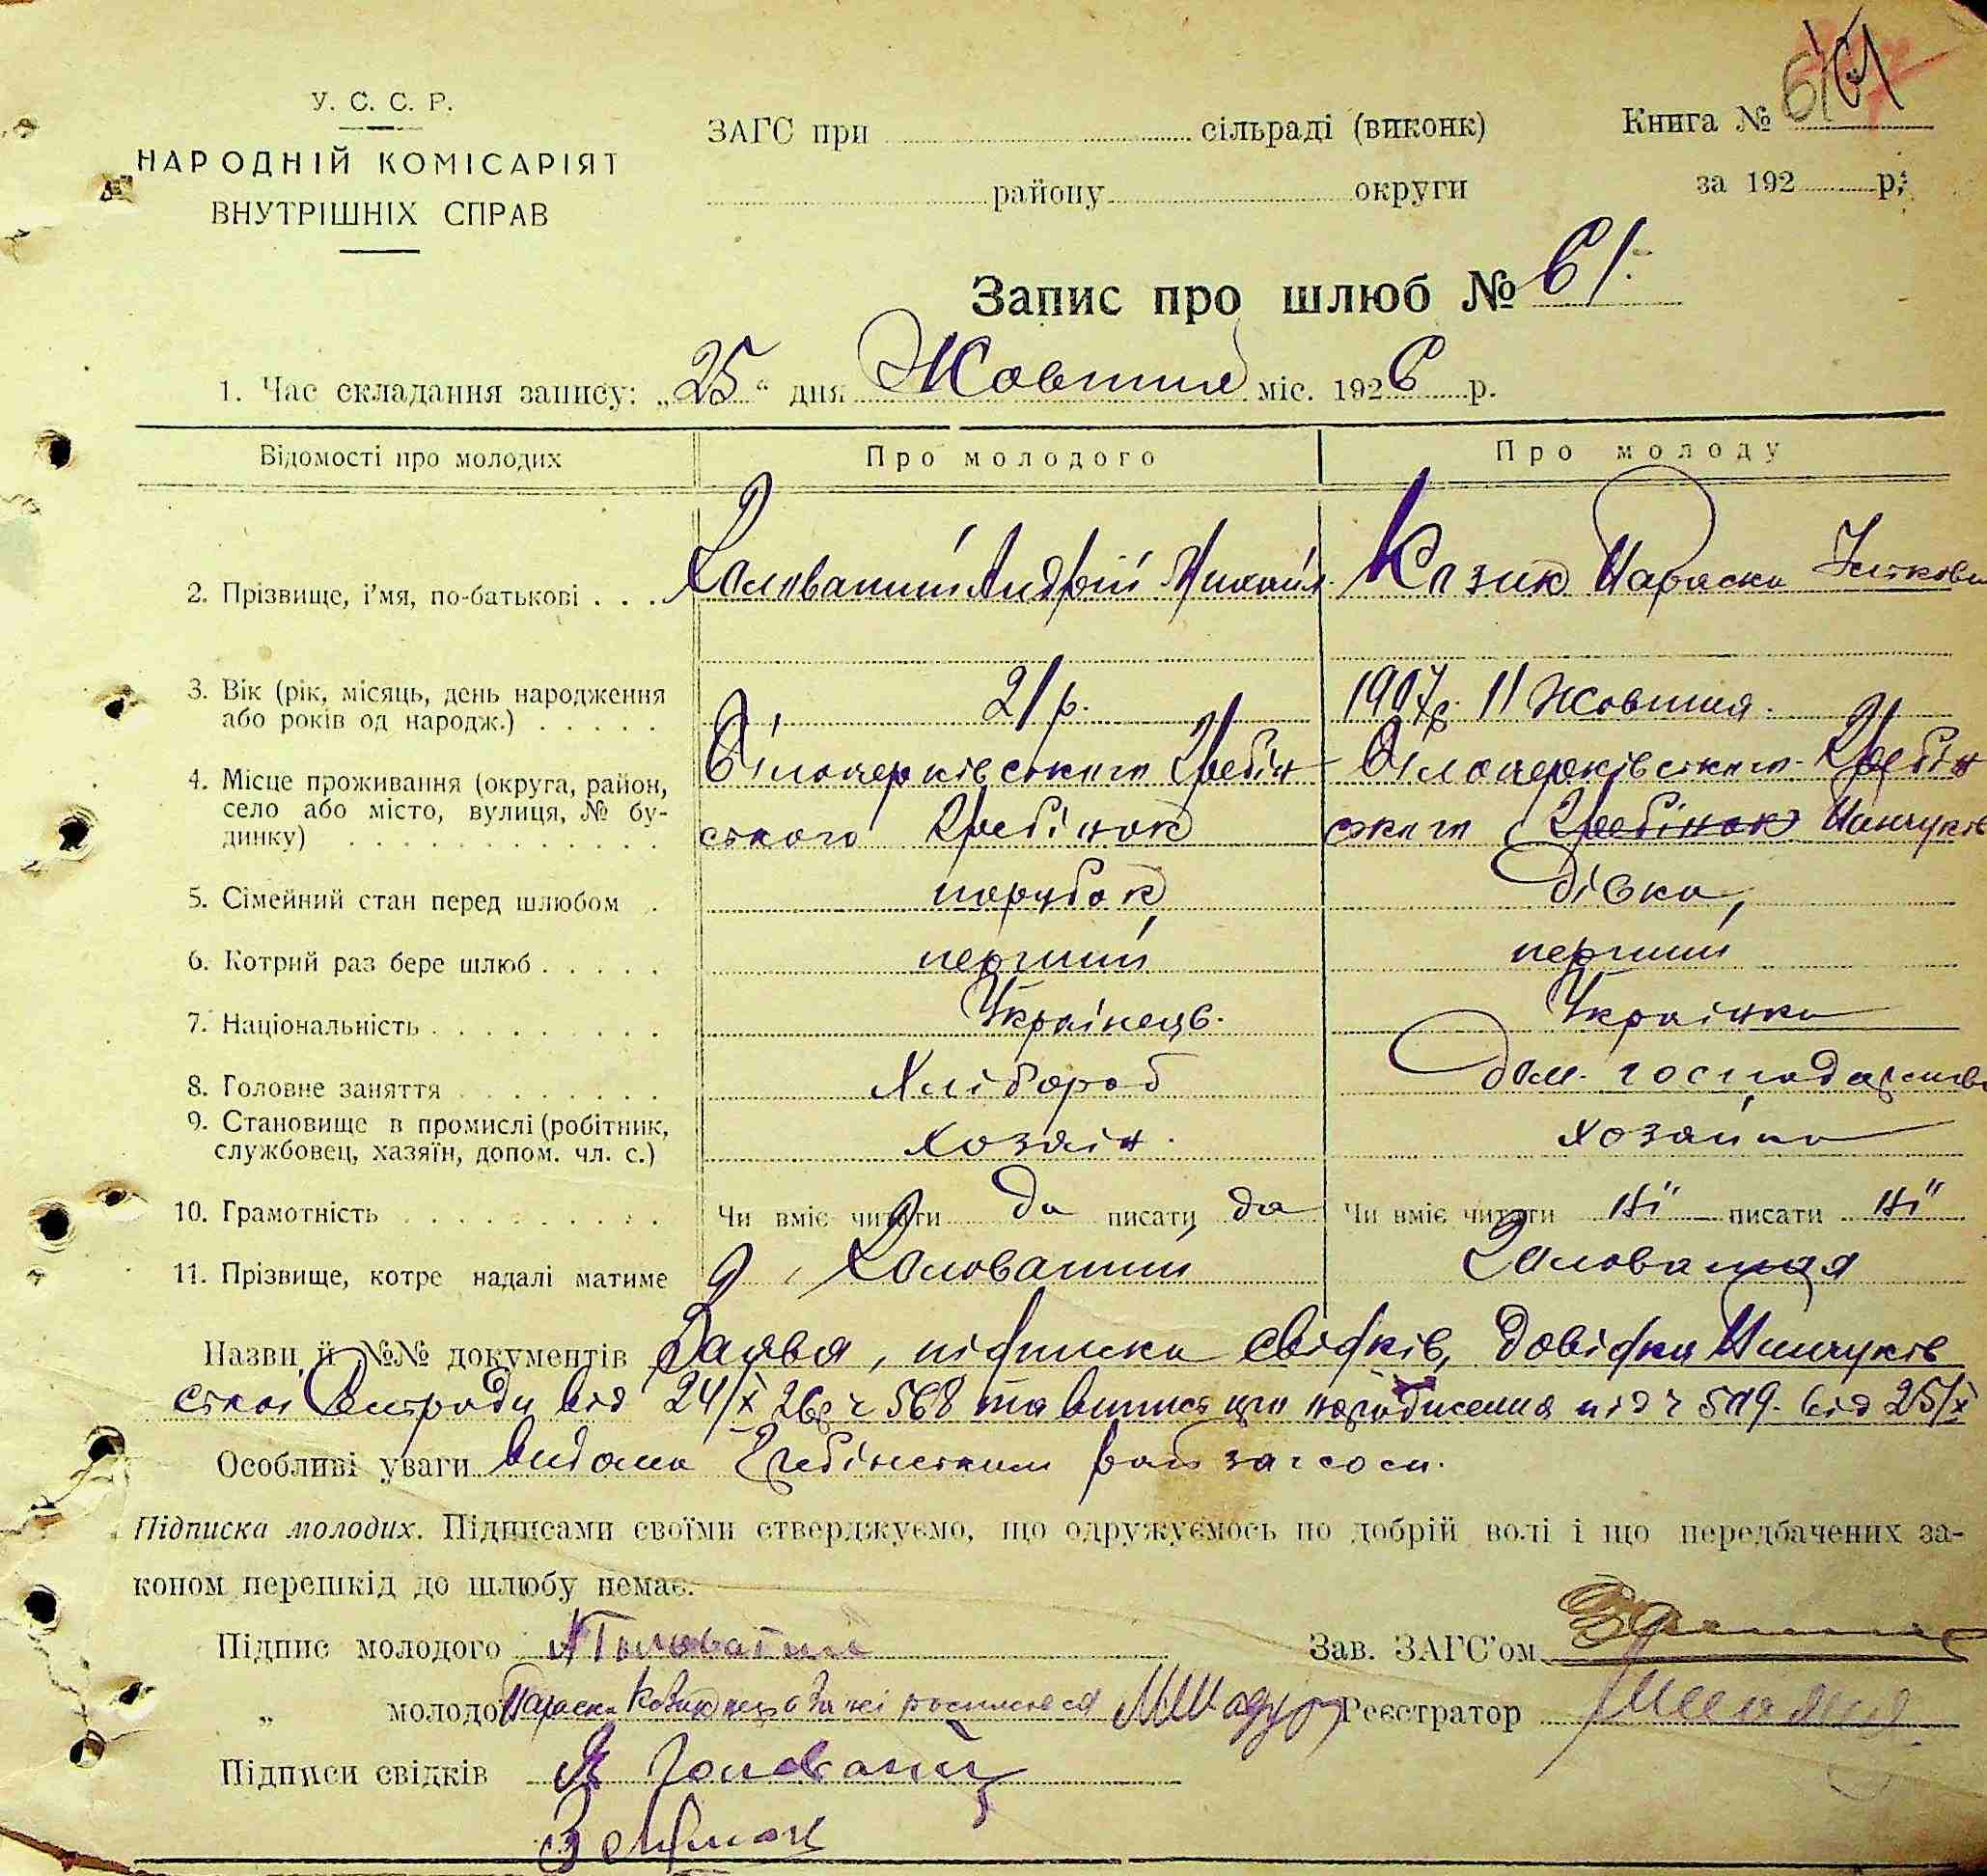 61
У. С. С. Р.
НАРОДНІЙ КОМІСАРІЯТ
ВНУТРІШНІХ СПРАВ
ЗАГС при сільраді (виконк)
району округи
Книга №
за 192 р.
Запис про шлюб № 61.
1. Час складання запису: „25“ дня Жовтня міс. 1926 р.
Відомості про молодих Про молодого Про молоду
2. Прізвище, і'мя, по-батькові . . . Головатий Андрій Михайл. Козик Параска
3. Вік (рік, місяць, день народження 21 р. 1907 р. 11 Жовтня.
або років од народж.) . . . . .
4. Місце проживання (округа, район, Білоцерківського Гребін Білоцерківського Гребін
село або місто, вулиця, № бу- ського Гребінок ського Гребінок Пінчуків
динку) . . . . . . . . . . . .
5. Сімейний стан перед шлюбом . парубок дівка,
6. Котрий раз бере шлюб . . . . . перший перший
7. Національність . . . . . . . . Українець. Українка
8. Головне заняття . . . . . . . . Хлібороб Дом. господарство
9. Становище в промислі (робітник, хозяін. хозяйка
службовец, хазяїн, допом. чл. с.)
10. Грамотність . . . . . . . . . . Чи вміє читати да писати да Чи вміє читати ні писати ні
11. Прізвище, котре надалі матиме Головатий Головатая
Назви й №№ документів Заява, підписка свідків, довідка Пінчуків
ської Сільради від 24/X 26 р ч 568 та випис про народження під ч 519. від 25/X
Особливі уваги видана Гребінським райзагсом.
Підписка молодих. Підписами своїми стверджуємо, що одружуємось по добрій волі і що передбачених за-
коном перешкід до шлюбу немає.
Підпис молодого А Головатий Зав. ЗАГС'ом
„ молодої Параска Козик Реєстратор
Підписи свідків Головатий